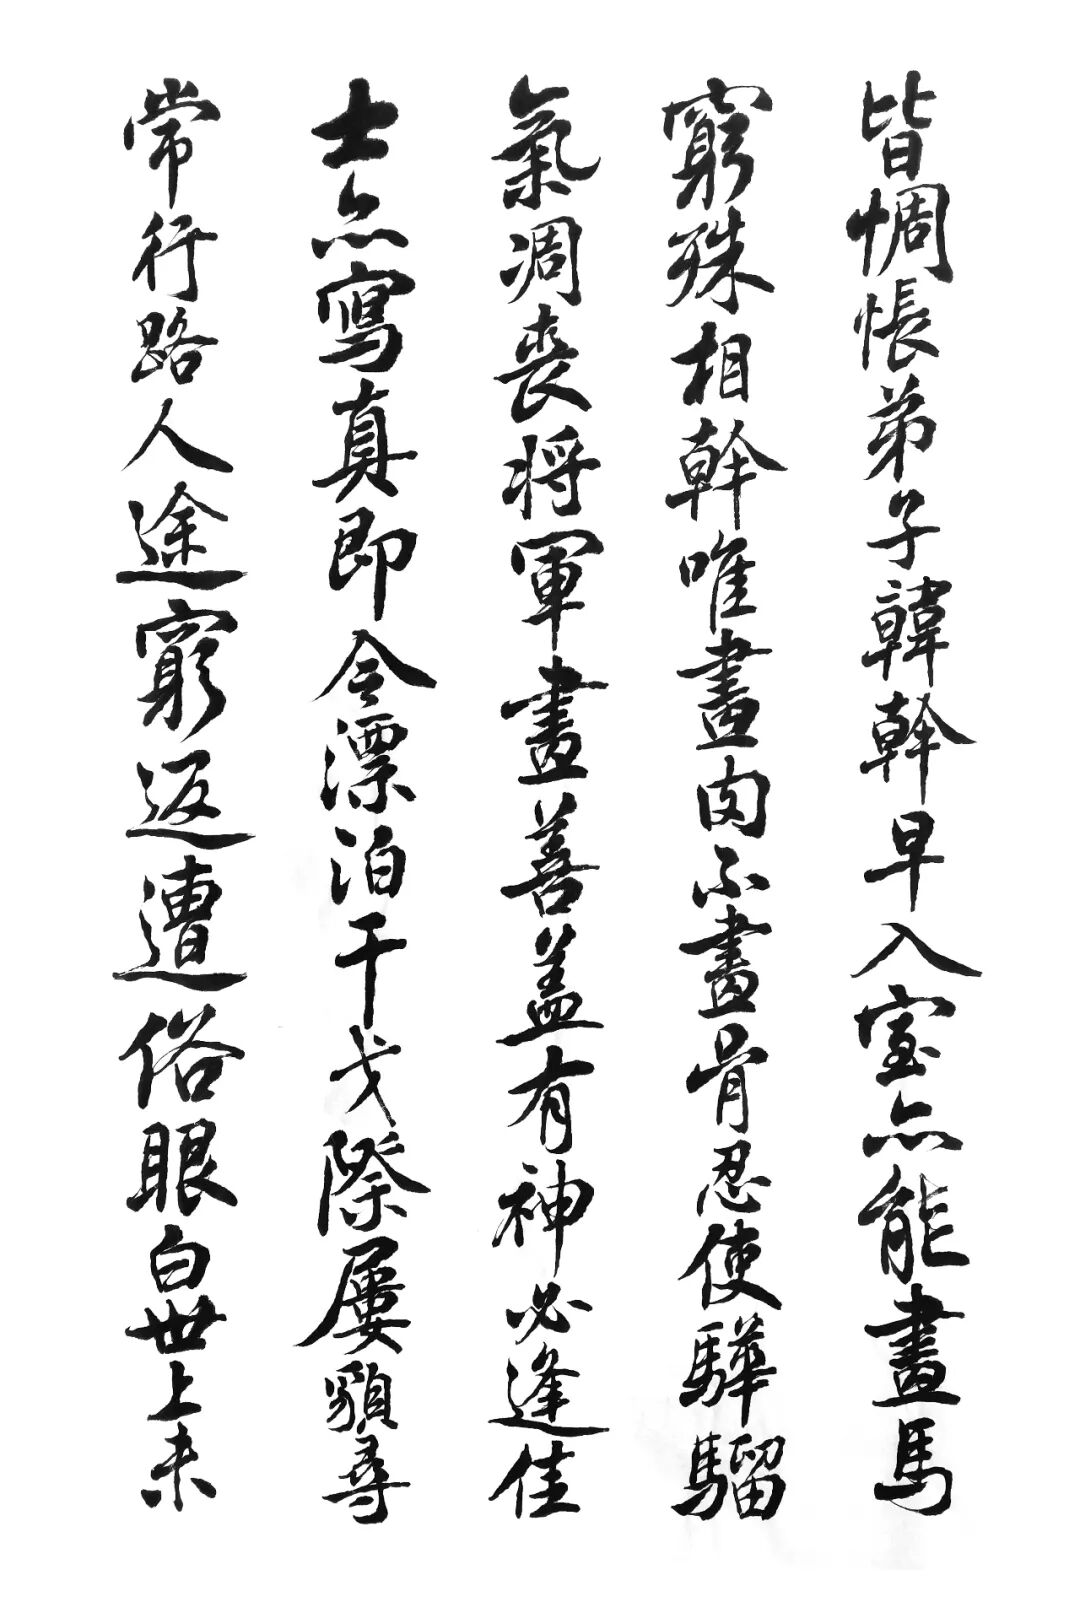 皆惆悵弟子韓幹早入室亦能畫馬
窮殊相幹唯畫肉不畫骨忍使驊騮
氣凋喪将軍畫善盖有神必逢佳
士亦寫真即今漂泊干戈際屢貌尋
常行路人途窮返遭俗眼白世上未